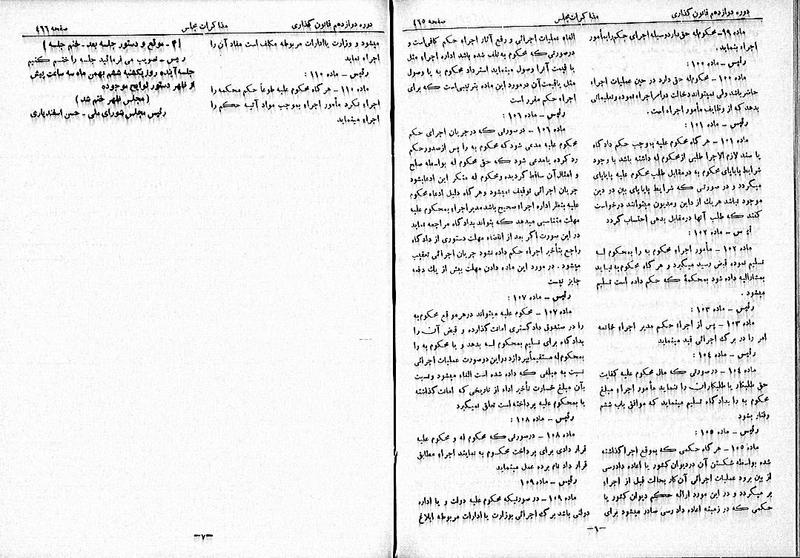 دوره دوازدهم قانون گذاری
مذاکرات مجلس
صفحه ۴۶۵
ماده ۹۹- محکوم‌له حق دارد وسیله اجرای حکم را بمأمور
اجراء بنماید.
رئیس - ماده ۱۰۰ :
ماده ۱۰۰- محکوم‌له حق دارد در حین عملیات اجراء
حاضر باشد ولی نمیتواند دخالت در امر اجراء نموده و تعلیماتی
بدهد که از وظایف مأمور اجراء است.
رئیس - ماده ۱۰۱ :
ماده ۱۰۱ - هر گاه محکوم علیه بموجب حکم دادگاه
یا سند لازم الاجرا طلبی از محکوم له داشته باشد با وجود
شرایط پایاپای محکوم به در مقابل طلب محکوم علیه پایاپای
میگردد و در صورتی که شرایط پایاپای بین در دین
موجود نباشد هر یك از داین و مدیون میتوانند درخواست
کنند که طلب آنها در مقابل بدهی احتساب گردد
رئیس - ماده ۱۰۲ :
ماده ۱۰۲ - مأمور اجراء محکوم به را بمحکوم له
تسلیم نموده قبض رسید میگیرد و هر گاه محکوم به نباید
بمشارالیه داده شود بمحکمهٔ که حکم داده است تسلیم
میشود .
رئیس - ماده ۱۰۳ :
ماده ۱۰۳ - پس از اجراء حکم مدیر اجراء خاتمه
امر را در برگ اجرائی قید مینماید
رئیس - ماده ۱۰۴ :
ماده ۱۰۴ - در صورتی که مال محکوم علیه کفایت
حق طلبکار یا طلبکاران را ننماید مأمور اجراء مبلغ
محکوم به را بدادگاه تسلیم مینماید که موافق باب ششم
رفتار بشود
رئیس - ماده ۱۰۵ :
ماده ۱۰۵ - هر گاه حکمی که بموقع اجرا گذاشته
شده بواسطه شکستن آن در دیوان کشور یا اعاده دادرسی
از بین برود عملیات اجرائی آن کار بحالت قبل از اجراء
بر میگردد و در این مورد ارائه حکم دیوان کشور یا
حکمی که در زمینه اعاده دادرسی صادر میشود برای
الغاء عملیات اجرائی و رفع آثار اجراء حکم کافی است و
در صورتی که محکوم به تلف شده باشد اداره اجراء مثل
یا قیمت آنرا وصول مینماید استرداد محکوم به یا وصول
مثل یا قیمت آن در مورد این ماده بترتیبی است که برای
اجراء حکم مقرر است
رئیس - ماده ۱۰۶ :
ماده ۱۰۶ - در صورتی که در جریان اجرای حکم
محکوم علیه مدعی شود که محکوم به را پس از صدور حکم
رد کرده یا مدعی شود که حق محکوم له بواسطه صلح
و امثال آن ساقط گردیده و محکوم له منکر این ادعا بشود
جریان اجرائی توقیف نمیشود و هر گاه دلیل ادعاء محکوم
علیه بنظر اداره اجراء صحیح باشد مدیر اجراء بمحکوم علیه
مهلت متناسبی میدهد که بتواند بدادگاه مراجعه نماید
در این صورت اگر بعد از انقضاء مهلت دستوری از دادگاه
راجع بتأخیر اجراء حکم داده نشود جریان اجرائی تعقیب
میشود . در مورد این ماده دادن مهلت بیش از یك دفعه
جایز نیست
رئیس - ماده ۱۰۷ :
ماده ۱۰۷ - محکوم علیه میتواند در هر موقع محکوم به
را در صندوق دادگستری امانت گذارده و قبض آن را
بدادگاه برای تسلیم بمحکوم له بدهد و یا محکوم به را
بمحکوم له مستقیماً بپردازد در این دو صورت عملیات اجرائی
نسبت به مبلغی که داده شده است الغاء میشود و نسبت
بآن مبلغ خسارت تأخیر اداء از تاریخی که امانت گذاشته
یا بمحکوم علیه پرداخته است تعلق نمیگیرد
رئیس - ماده ۱۰۸ :
ماده ۱۰۸ - در صورتی که محکوم له و محکوم علیه
قرار دادی برای پرداخت محکوم به نمایند اجراء مطابق
قرار داد نام برده عمل مینماید
رئیس - ماده ۱۰۹
ماده ۱۰۹ - در صورتیکه محکوم علیه دولت و یا اداره
دولتی باشد برگ اجرائی بوزارت یا ادارات مربوطه ابلاغ
-۶-
دوره دوازدهم قانون گذاری
مذاکرات مجلس
صفحه ۴۶۶
میشود و وزارت یا ادارات مربوطه مکلف است مفاد آن را
اجراء نماید
رئیس - ماده ۱۱۰ :
ماده ۱۱۰ - هر گاه محکوم علیه طوعاً حکم محکمه را
اجراء نکرد مأمور اجراء بموجب مواد آتیه حکم را
اجراء مینماید
[۳ - موقع و دستور جلسه بعد - ختم جلسه ]
رئیس - تصویب می فرمائید جلسه را ختم کنیم
جلسه آینده روز یکشنبه ششم بهمن ماه سه ساعت پیش
از ظهر دستور لوایح موجوده
( مجلس ظهر ختم شد )
رئیس مجلس شورای ملی - حسن اسفندیاری
-۷-